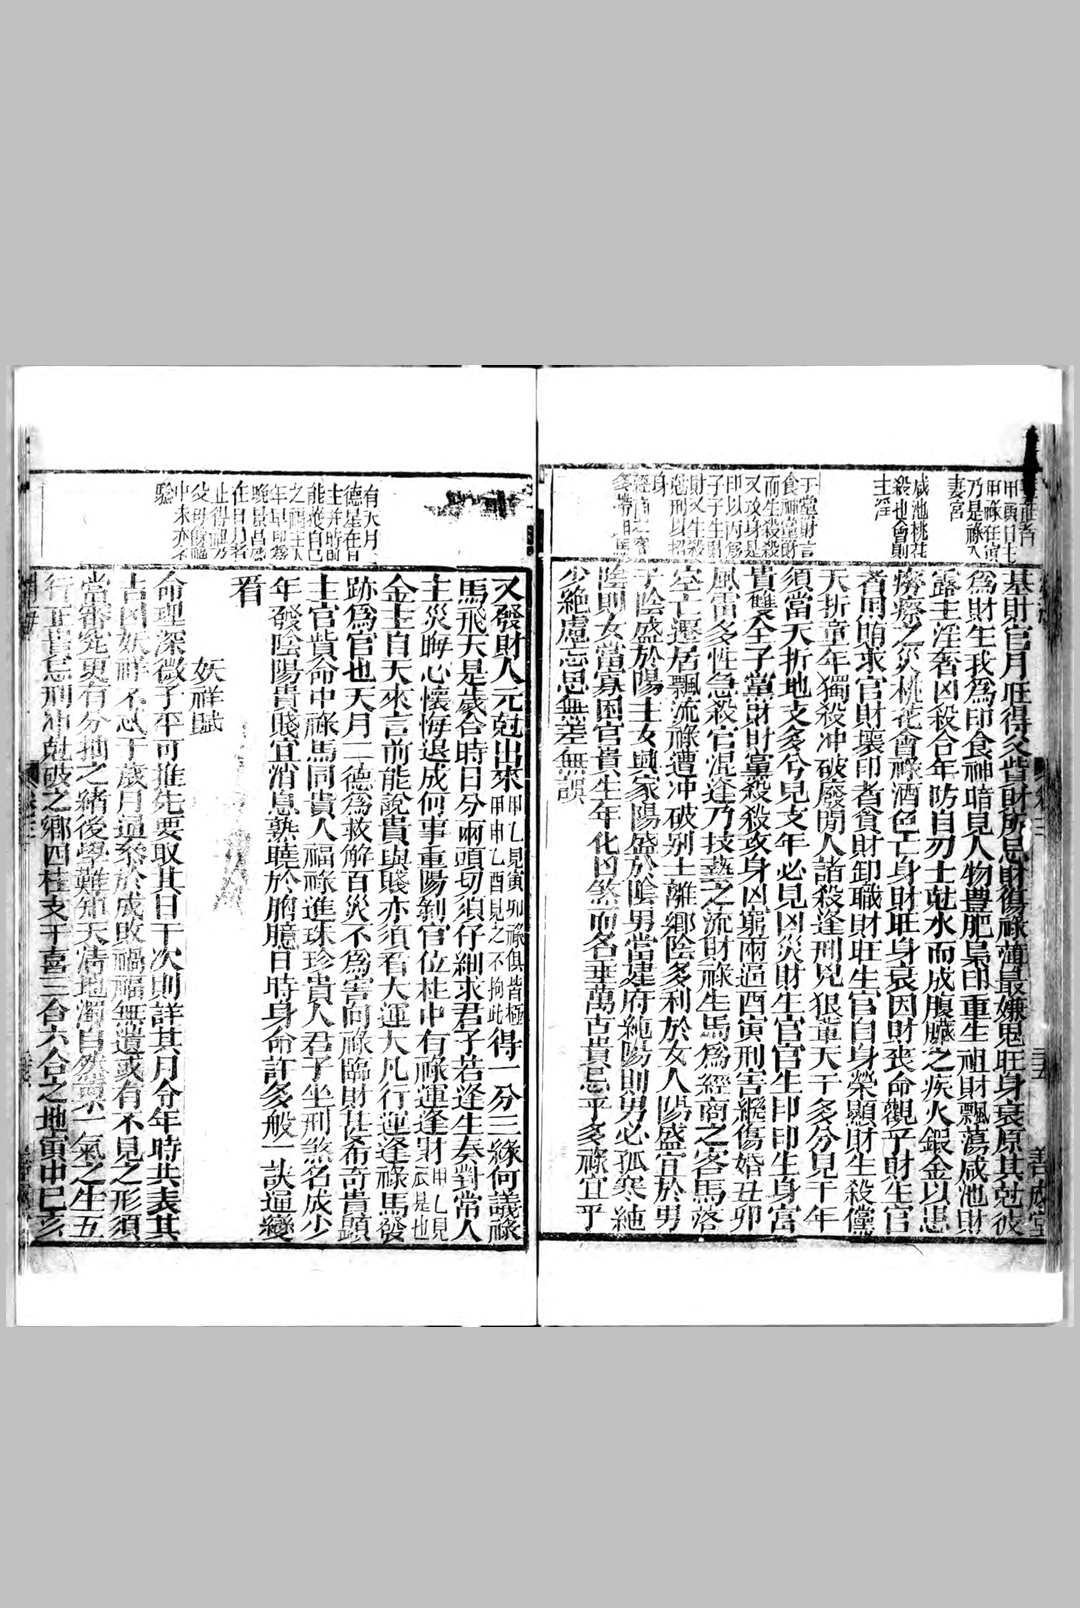 甲寅日主
甲祿在寅
乃是祿入
妻宮
咸池桃花
殺也會則
主淫
干黨財言
食神黨財
而生殺殺
又攻身是
印以丙為
子子生財
財又生殺
尅刑以招
身
基財官月旺得父貲財所忌財傷祿薄最嫌鬼旺身衰原其尅彼
為財生我為印食神暗見人物豊肥梟印重生祖財飄蕩咸池財
露主淫奢凶殺合年防自刃土尅水而成腹臟之疾火鍜金以患
癆瘵之災桃花會祿酒色亡身財旺身衰因財喪命觀乎財生官
者用賄求官財壞印者貪財卸職財旺生官自身榮顯財生殺黨
夭折童年獨殺冲破廢閒人諸殺逢刑兇狠輩天干多分見干年
須當夭折地支多兮見支年必見凶災財生官官生印印生身富
貴雙全子黨財財黨殺殺攻身凶窮兩逼酉寅刑害縱傷婚丑卯
風雷多性急殺官混逢乃技藝之流財祿生馬為經商之客馬落
空亡遷居飄流祿遭冲破别土離鄉陰多利於女人陽盛宜於男
子陰盛於陽主女興家陽盛於陰男當建府純陽則男必孤寒純
陰則女當寡困官貴生年化凶煞而名垂萬古貴忌乎多祿宜乎
少絶慮忘思無差無誤
善成堂
有天月二
德星在日
主并時時
能救自己
之酉主人
年早印為
晚景昌盛
在日月者
止得
父母
中末亦不
驗
又發財人元尅出來甲乙見寅卯祿俱皆極甲申乙酉見之不拘此得一分三緣何議祿
馬飛天是歲合時日分兩頭切須仔細求君子若逢生奏對常人
主災晦心懷悔退成何事重陽剝官位柱中有祿運逢財甲乙見戊是也
金主自天來言前能說貴與賤亦須看大運大凡行運逢祿馬發
跡為官也天月二德為救解百災不為害向祿臨財甚希奇貴顕
主官貲命中祿馬同貴人福祿進珠珍貴人君子坐刑煞名成少
年發陰陽貴賤宜消息熟曉於臍臆日時身命許多般一訣逼變
看
妖祥賦
命理深微子平可推先要取其日干次則詳其月令年時共表其
吉凶妖祥不忒于歲月通叅於成敗禍福無遺或有不見之形須
當審究更有分抽之緒後學難知天清地濁自然禀一氣之生五
行正貴忌刑冲尅破之鄉四柱支干喜三合六合之地寅申巳亥